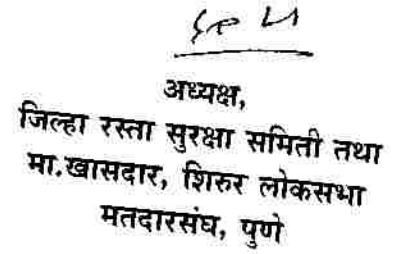 अध्यक्ष,
जिल्हा रस्ता सुरक्षा समिती तथा
मा.खासदार, शिरुर लोकसभा
मतदारसंघ, पुणे